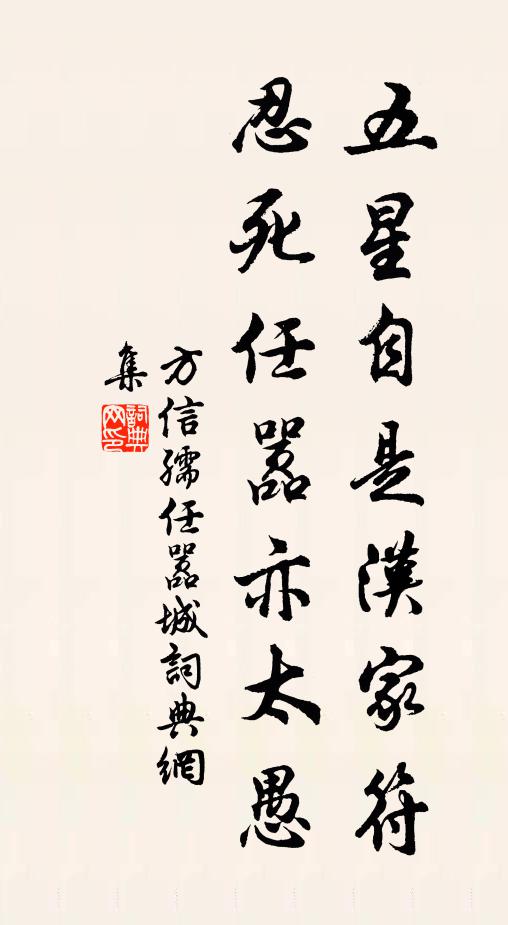 五星自是漢家符
忍死任囂亦太愚
方信孺任囂城詞典網
集
詞典
网印